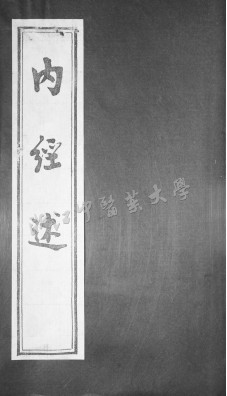 内經述
中醫藥大學